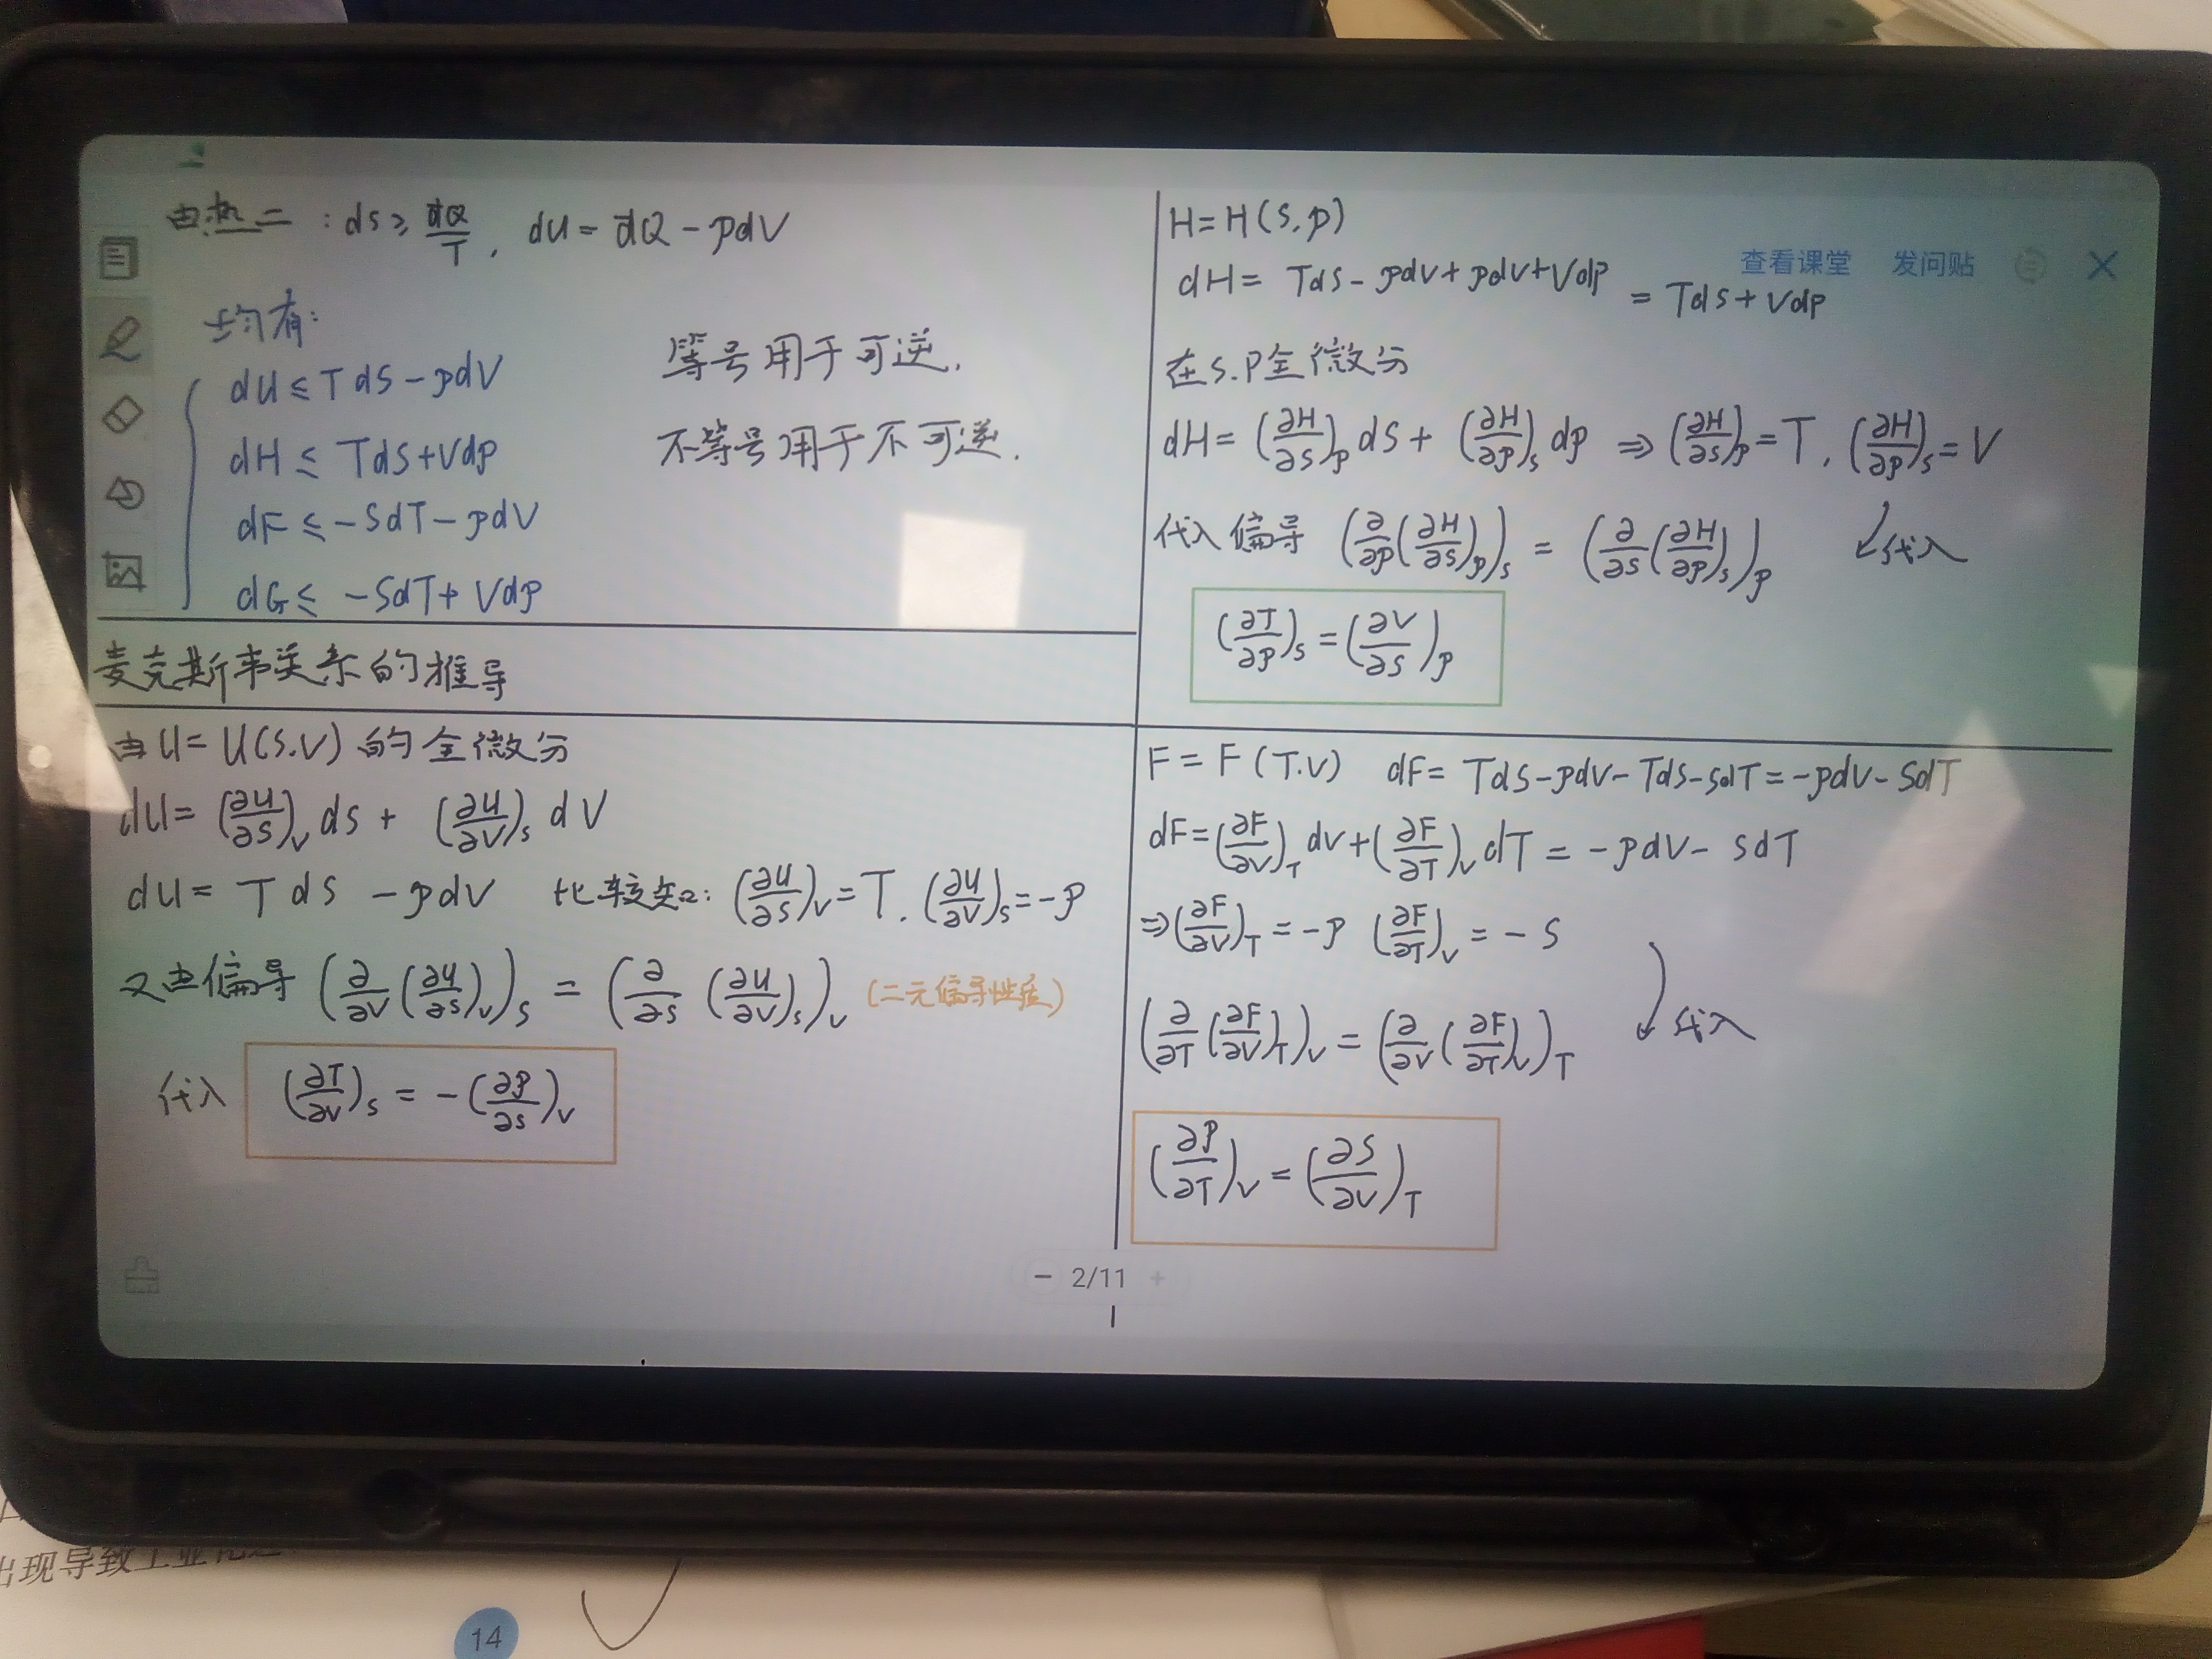 由热二：dS ≥ đQ/T， dU = đQ - pdV
均有：
dU ≤ TdS - pdV
dH ≤ TdS + Vdp
dF ≤ -SdT - pdV
dG ≤ -SdT + Vdp
等号用于可逆.
不等号用于不可逆.
麦克斯韦关系的推导
由U = U(S.V) 的全微分
dU = (∂U/∂S)_V dS + (∂U/∂V)_S dV
dU = TdS - pdV 比较知：(∂U/∂S)_V = T. (∂U/∂V)_S = -p
又由偏导 (∂/∂V (∂U/∂S)_V)_S = (∂/∂S (∂U/∂V)_S)_V (二元偏导性质)
代入 (∂T/∂V)_S = -(∂p/∂S)_V
H = H(S,p)
查看课堂 发问贴
dH = TdS - pdV + pdV + Vdp = TdS + Vdp
在S.P全微分
dH = (∂H/∂S)_p dS + (∂H/∂p)_S dp ⇒ (∂H/∂S)_p = T, (∂H/∂p)_S = V
代入偏导 (∂/∂p (∂H/∂S)_p)_S = (∂/∂S (∂H/∂p)_S)_p ↙代入
(∂T/∂p)_S = (∂V/∂S)_p
F = F(T.V) dF = TdS - pdV - TdS - SdT = -pdV - SdT
dF = (∂F/∂V)_T dV + (∂F/∂T)_V dT = -pdV - SdT
⇒ (∂F/∂V)_T = -p (∂F/∂T)_V = -S
(∂/∂T (∂F/∂V)_T)_V = (∂/∂V (∂F/∂T)_V)_T ↙代入
(∂p/∂T)_V = (∂S/∂V)_T
− 2/11 +
出现导致工业化
14